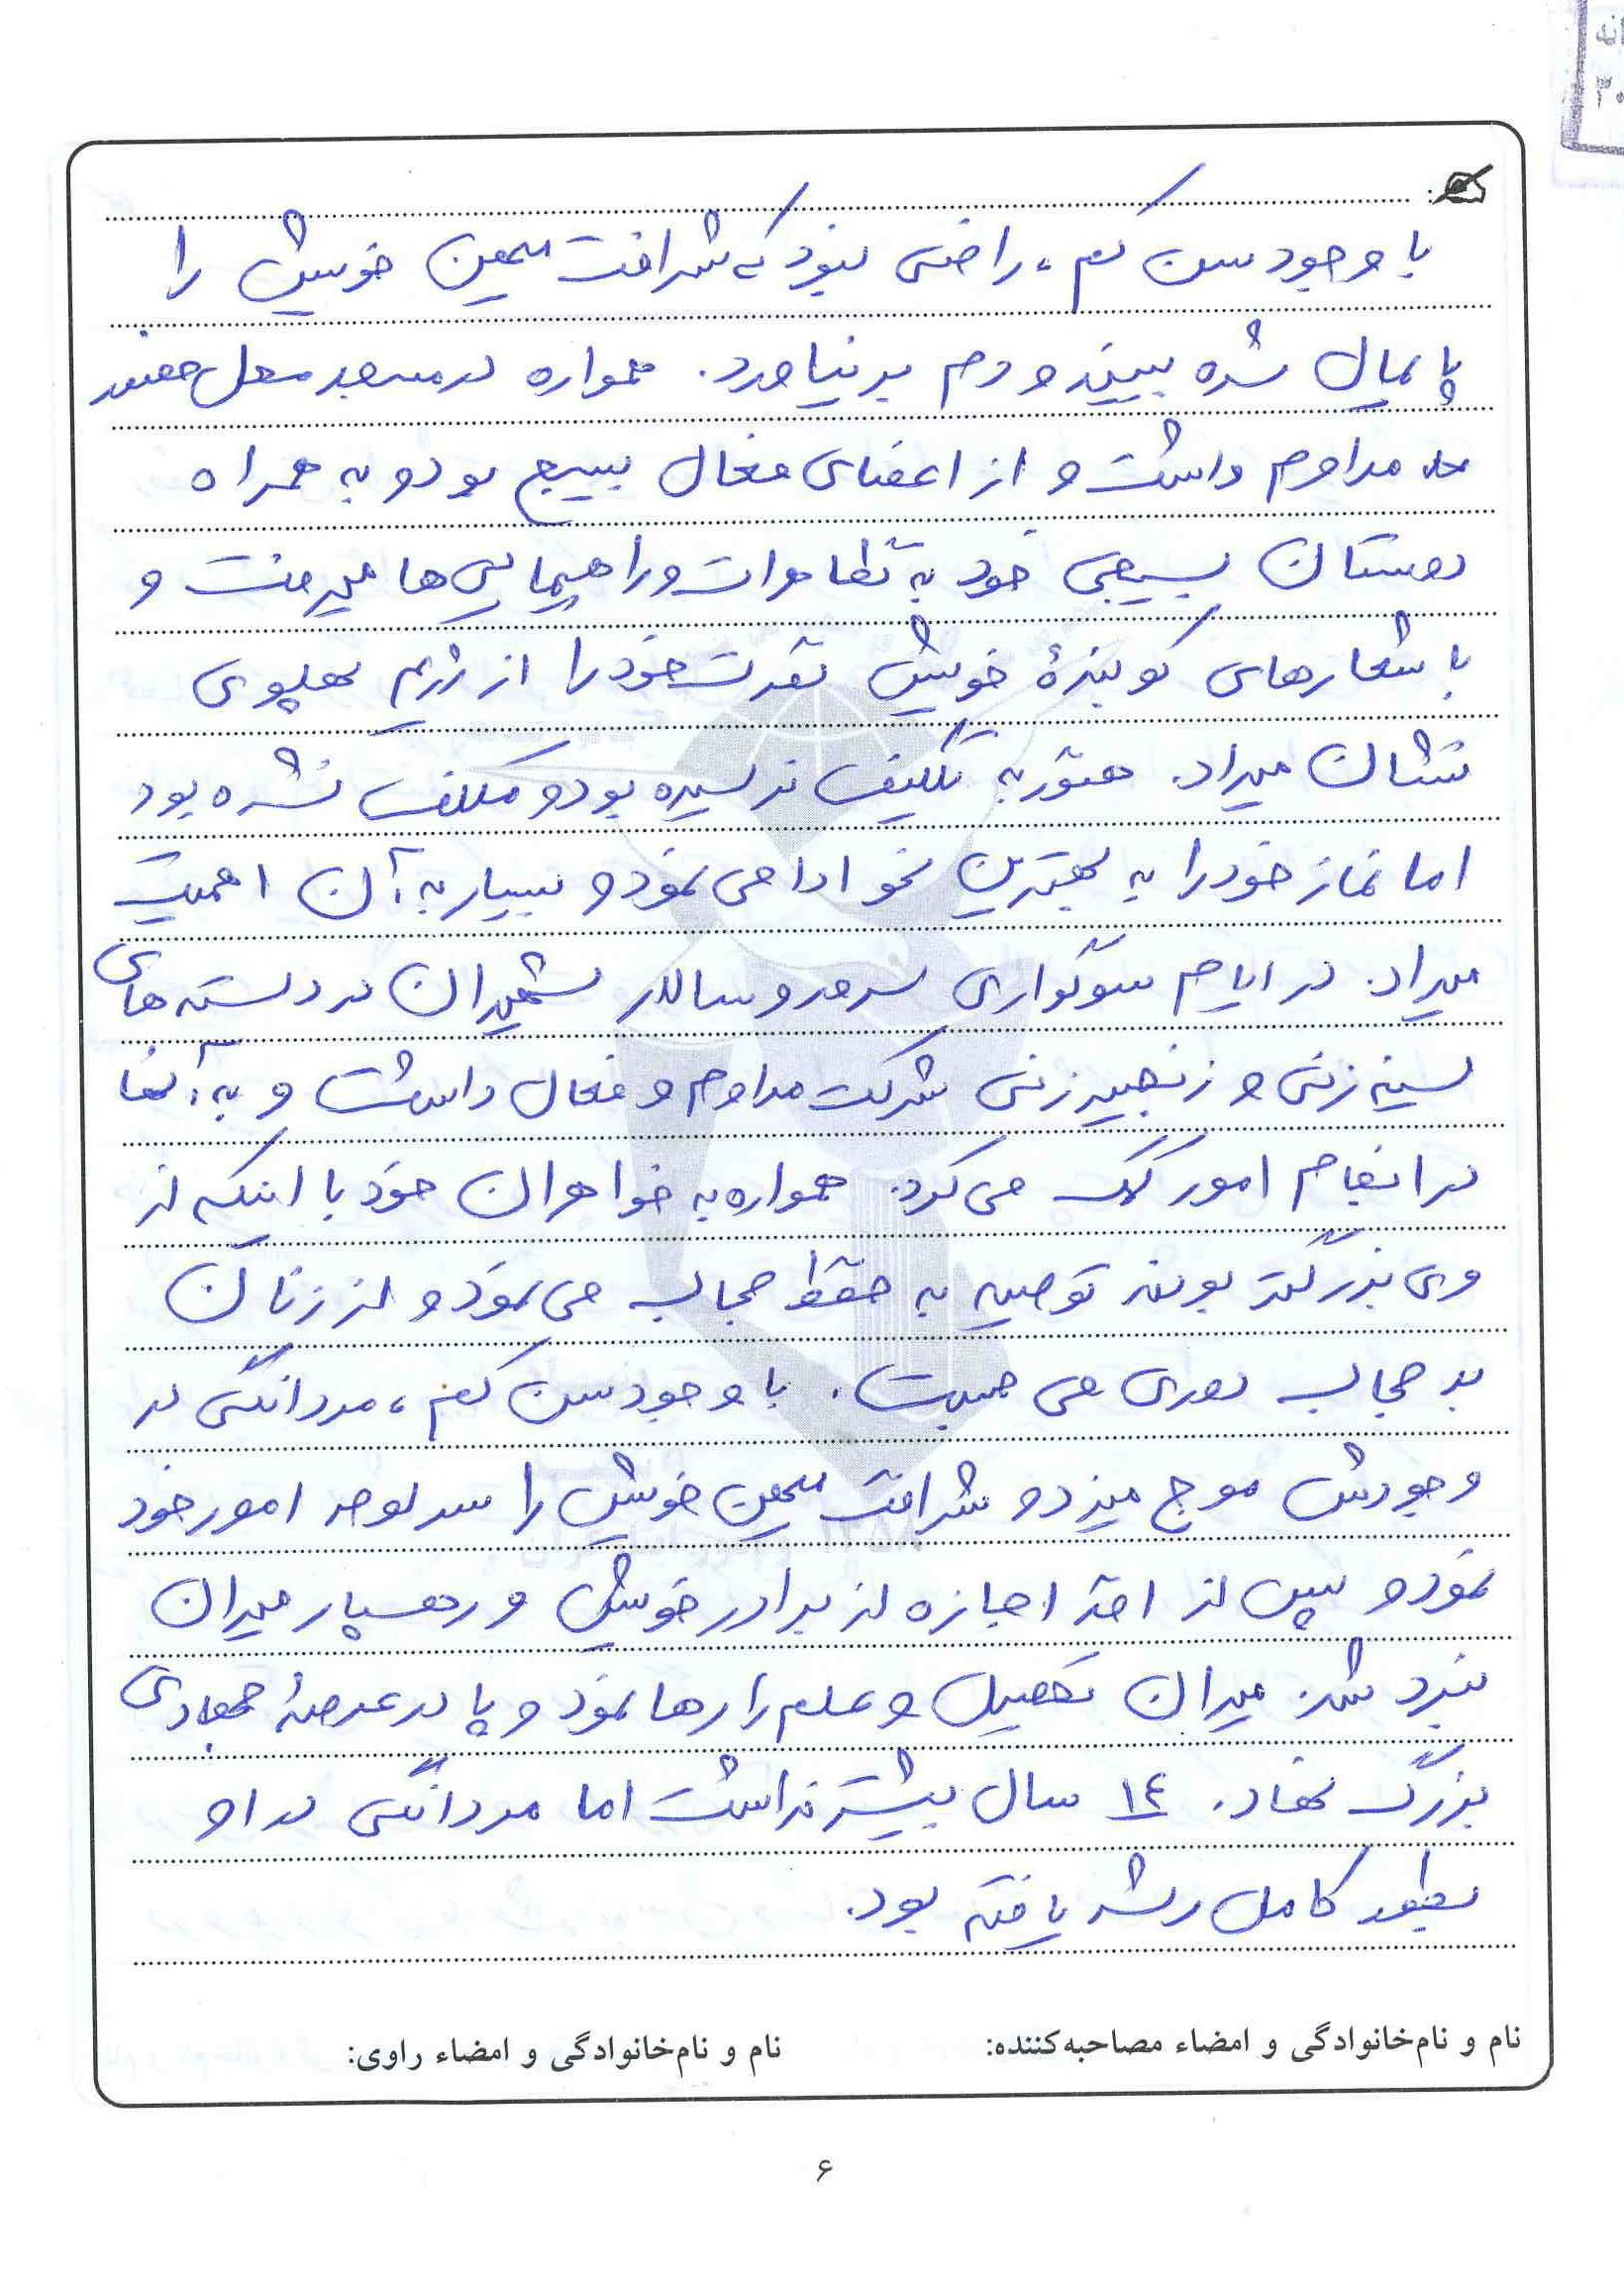 با وجود سن کم، راضی نبود که شرافت میهن خویش را
پایمال شده ببیند و دم بر نیاورد. همواره در مسجد محل حضور
مداوم داشت و از اعضای فعال بسیج بود و به همراه
دوستان بسیجی خود به تظاهرات و راهپیمایی‌ها میرفت و
با شعارهای کوبندهٔ خویش نفرت خود را از رژیم پهلوی
نشان میداد. هنوز به تکلیف نرسیده بود و مکلف نشده بود
اما نماز خود را به بهترین نحو ادا می نمود و بسیار به آن اهمیت
میداد. در ایام سوگواری سرور و سالار شهیدان در دسته های
سینه زنی و زنجیر زنی شرکت مداوم و فعال داشت و به آنها
در انجام امور کمک می کرد. همواره به خواهران خود با اینکه از
وی بزرگتر بودند توصیه به حفظ حجاب می نمود و از زنان
بد حجاب دوری می جست. با وجود سن کم، مردانگی در
وجودش موج میزد و شرافت میهن خویش را سرلوحه امور خود
نمود و پس از اخذ اجازه از برادر خویش و رهسپار میدان
نبرد شد. میدان تحصیل و علم را رها نمود و پا در عرصهٔ جهادی
بزرگ نهاد. ١٤ سال بیشتر نداشت اما مردانگی در او
بطور کامل رشد یافته بود.
نام و نام‌خانوادگی و امضاء مصاحبه‌کننده: نام و نام‌خانوادگی و امضاء راوی:
۶